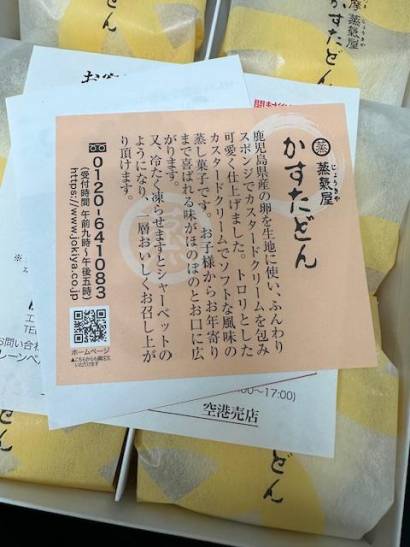 蒸
蒸氣屋
じょうきや
かすたどん
鹿児島県産の卵を生地に使い、ふんわり
スポンジでカスタードクリームを包み
可愛く仕上げました。トロリとした
カスタードクリームでソフトな風味の
蒸し菓子です。お子様からお年寄り
まで喜ばれる味がほのぼのとお口に広
がります。
又、冷たく凍らせますとシャーベットの
ようになり、一層おいしくお召し上が
り頂けます。
0120-641083
(受付時間 午前九時〜午後五時)
https://www.jokiya.co.jp
ホームページ
▲こちらからも御注文いただけます
摩
蒸氣屋
じょうきや
かすたどん
開封後
工
TEL
お問い合わせ
レーンペ
〜17:00)
空港売店
どん
たどん